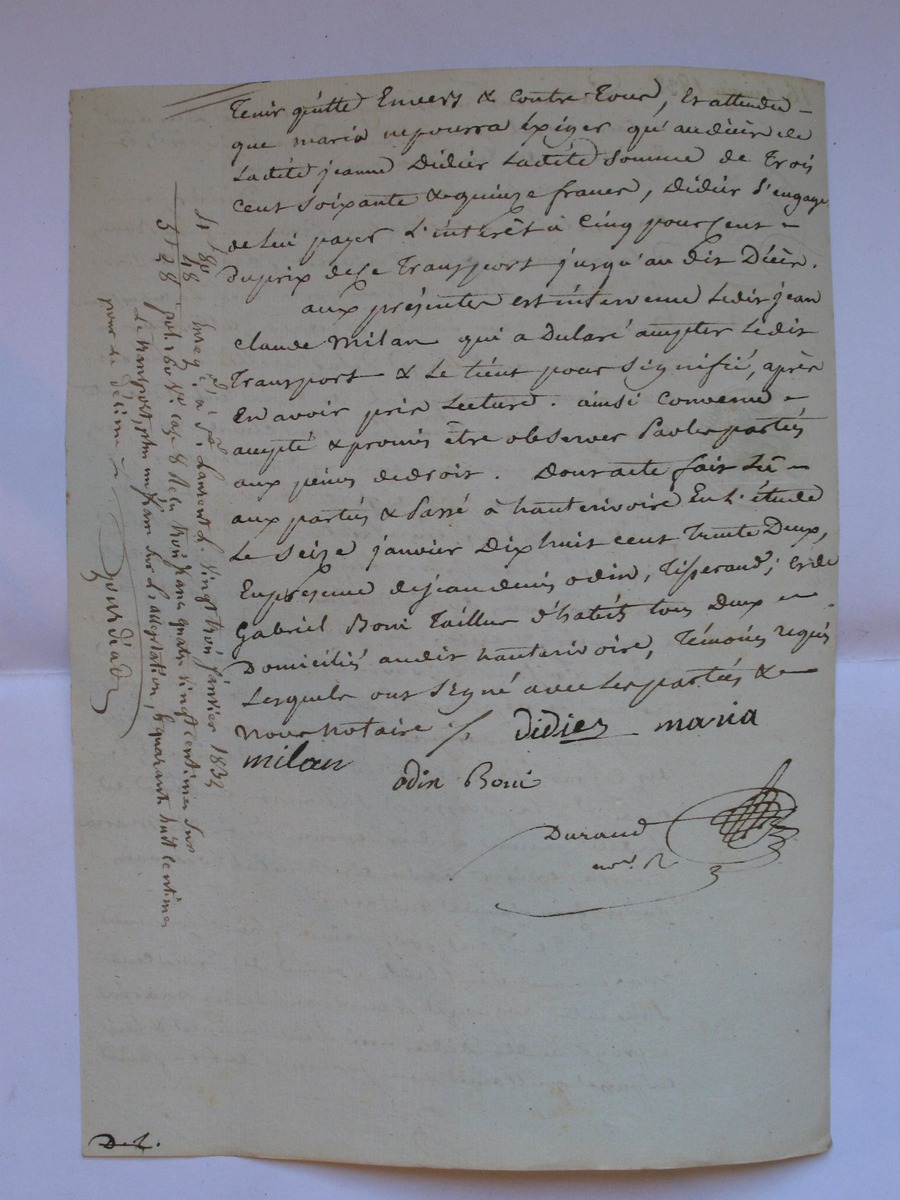 Tenir quitte Envers & contre Tous, Et attendu
que maria ne pourra Exiger qu'au décès de
Ladite jeanne Didier Ladite Somme de Trois
cent Soixante & quinze francs, Didier S'engage
de Lui payer L'intérêt à Cinq pour Cent
Du prix de ce Transport jusqu'au dit Décès.
aux présentes est intervenu Ledit jean
claude Milan qui a Déclaré accepter Ledit
Transport & Le tient pour Signifié, après
En avoir pris Lecture. ainsi Convenu
accepté & promis être observer Par les parties
aux peines de droit. Dont acte fait Lu
aux parties & Passé à hauterivoire En L'étude
Le Seize janvier Dix huit cent trente Deux,
En présence de jean denis odin, Tisserand, Et de
Gabriel Boni Tailleur D'habits tous Deux
Domiciliés audit hauterivoire, Témoins requis
Lesquels ont Signé avec Les parties &
Nous Notaire
Didier maria
milan
odin Boni
Durand
nore
Enreg. à St Laurent L. vingt trois janvier 1832
fol. 160 Ve case 8 Reçu trois francs quatre vingt centimes sur
Le transport, plus un franc sur L'acceptation, & quarante huit centimes
pour le décime
4f 80
48
5f 28
D.L.